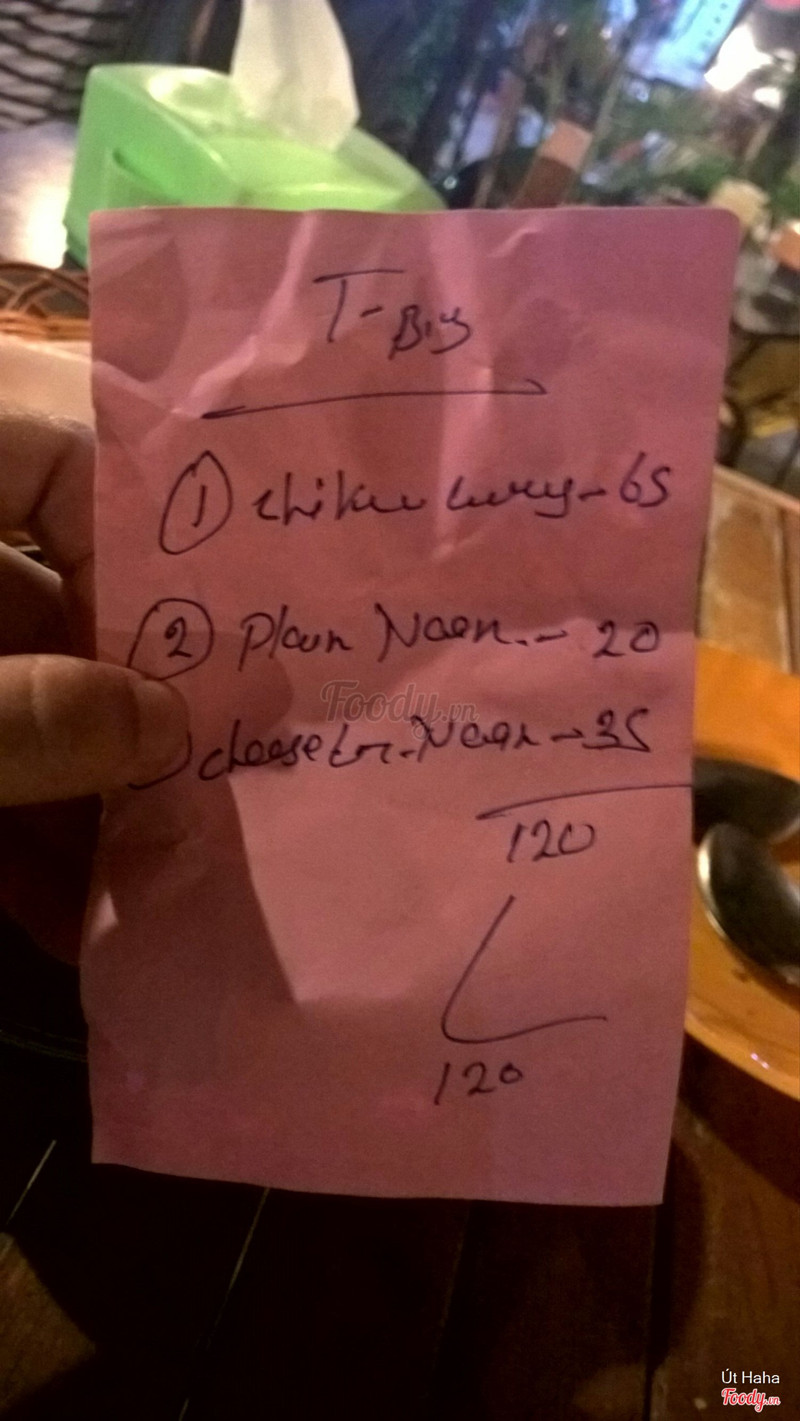 T- Big
1 chiken curry - 65
2 Plain Naan. - 20
cheese Naan - 35
120
120
Foody.vn
Út Haha
Foody.vn